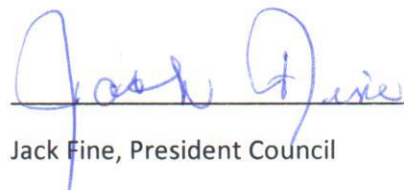 Jack Fine
Jack Fine, President Council